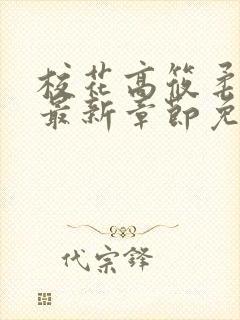 校花高筱柔
最新章節免
代宗鋒